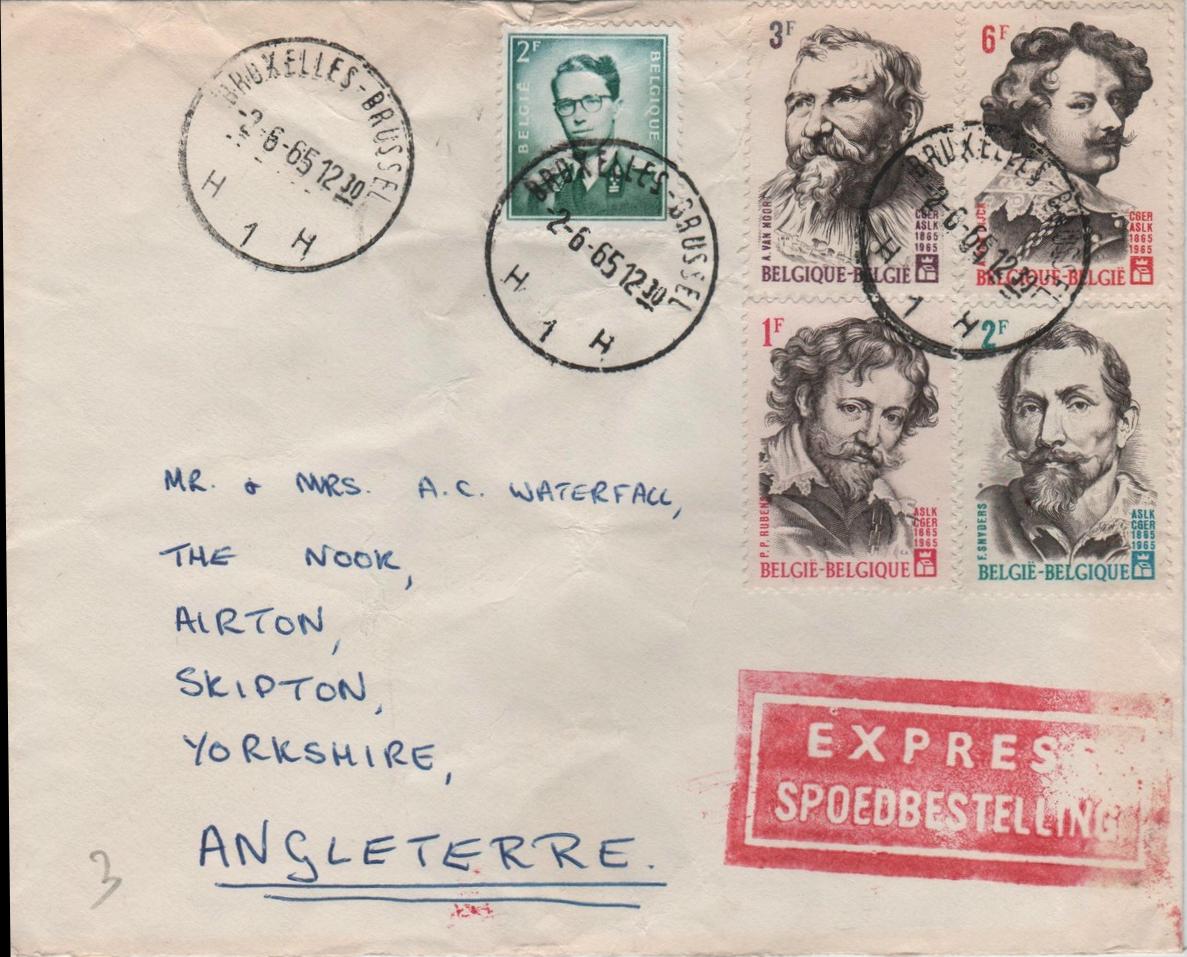 BRUXELLES-BRUSSEL
-2-6-65 12 30
H 1 H
2F
BELGIË
BELGIQUE
BRUXELLES-BRUSSEL
-2-6-65 12 30
H 1 H
3F
A. VAN NOORT
CGER
ASLK
1865
1965
BELGIQUE-BELGIË
6F
CGER
ASLK
1865
1965
BELGIQUE-BELGIË
BRUXELLES-BRUSSEL
-2-6-65 12 30
1 H
1F
P.P. RUBENS
ASLK
CGER
1865
1965
BELGIË-BELGIQUE
2F
F. SNYDERS
ASLK
CGER
1865
1965
BELGIË-BELGIQUE
MR. & MRS. A.C. WATERFALL,
THE NOOK,
AIRTON,
SKIPTON,
YORKSHIRE,
ANGLETERRE.
3
EXPRES
SPOEDBESTELLING